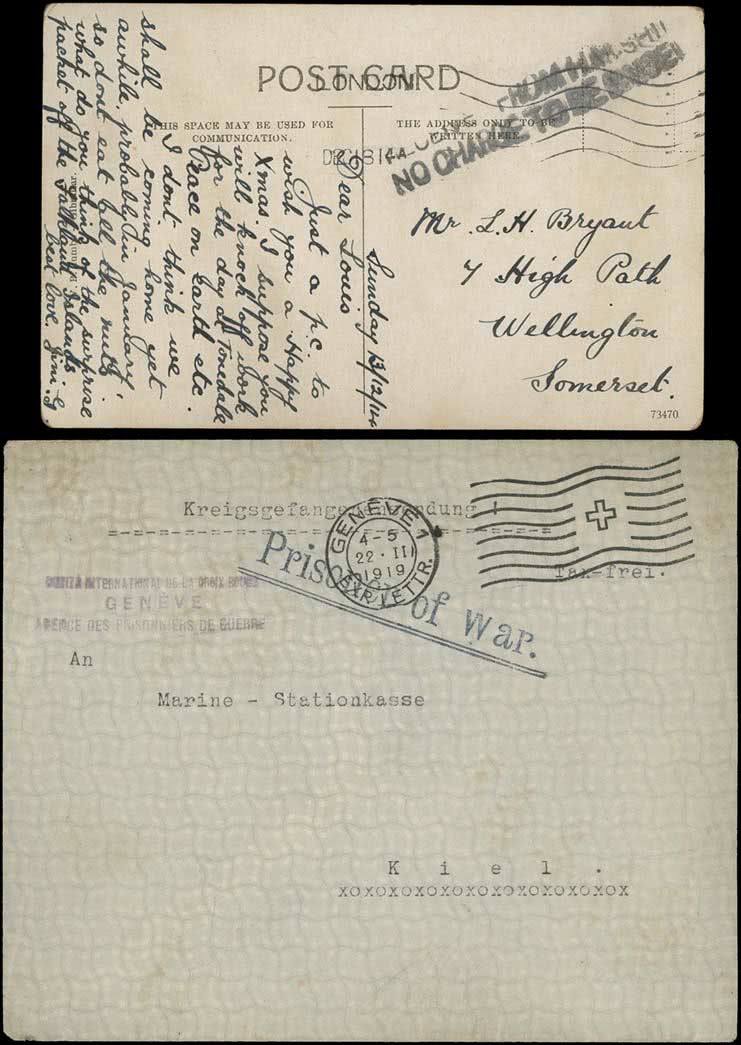 POST CARD
LONDON
FROM H.M. SHI
NO CHARGE TO BE
THIS SPACE MAY BE USED FOR
COMMUNICATION.
THE ADDRESS ONLY TO BE
WRITTEN HERE
DEC 13 14
Sunday 13/12/14
Dear Louis
Just a p.c. to
wish you a Happy
Xmas. I suppose you
will knock off work
for the day at Tonedale
Peace on Earth etc.
I dont think we
shall be coming home yet
awhile, probably in January,
so dont eat all the nuts,
what do you think of the surprise
packet off the Falkland Islands
best love.
Mr. L. H. Bryant
7 High Path
Wellington
Somerset.
73470
Kreigsgefangenensendung !
-=-=-=-=-=-=-=-=-=-=-=-=-=-
GENÈVE 1
4-5
22 · III
1919
EXP. LETTR.
Prisoner of War.
Tax-frei.
COMITÉ INTERNATIONAL DE LA CROIX ROUGE
GENÈVE
AGENCE DES PRISONNIERS DE GUERRE
An
Marine - Stationkasse
K i e l .
xoxoxoxoxoxoxoxoxoxoxox